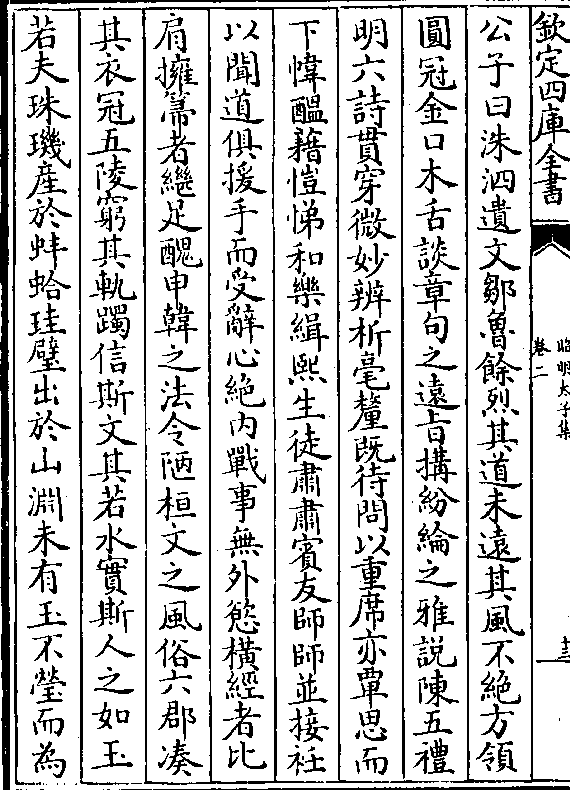 欽定四庫全書
昭明太子集
卷二
十三
公子曰洙泗遺文鄒魯餘烈其道未遠其風不絕方領
圓冠金口木舌談章句之遠旨搆紛綸之雅說陳五禮
明六詩貫穿微妙辨析毫釐既待問以重席亦覃思而
下幃醞藉愷悌和樂緝熙生徒肅肅賓友師師並接衽
以聞道俱援手而受辭心絕內戰事無外慾橫經者比
肩擁篲者繼足醜申韓之法令陋桓文之風俗六郡湊
其衣冠五陵窮其軌躅信斯文其若水實斯人之如玉
若夫珠璣産於蚌蛤珪璧出於山淵未有玉不瑩而為